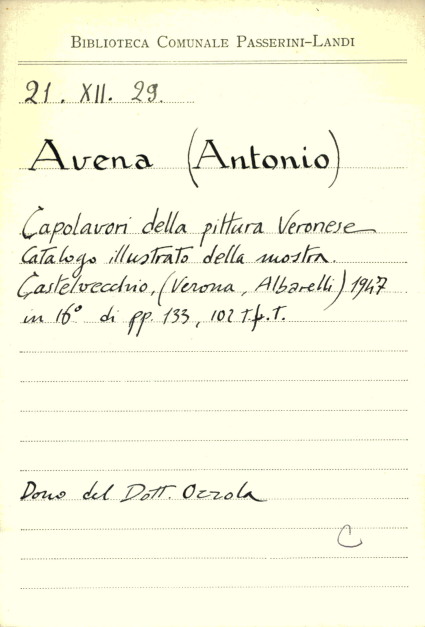 BIBLIOTECA COMUNALE PASSERINI-LANDI
21. XII. 29.
Avena (Antonio)
Capolavori della pittura Veronese
Catalogo illustrato della mostra.
Castelvecchio, (Verona, Albarelli) 1947
in 16° di pp. 133, 102 T.f.T.
Dono del Dott. Ozzola
C